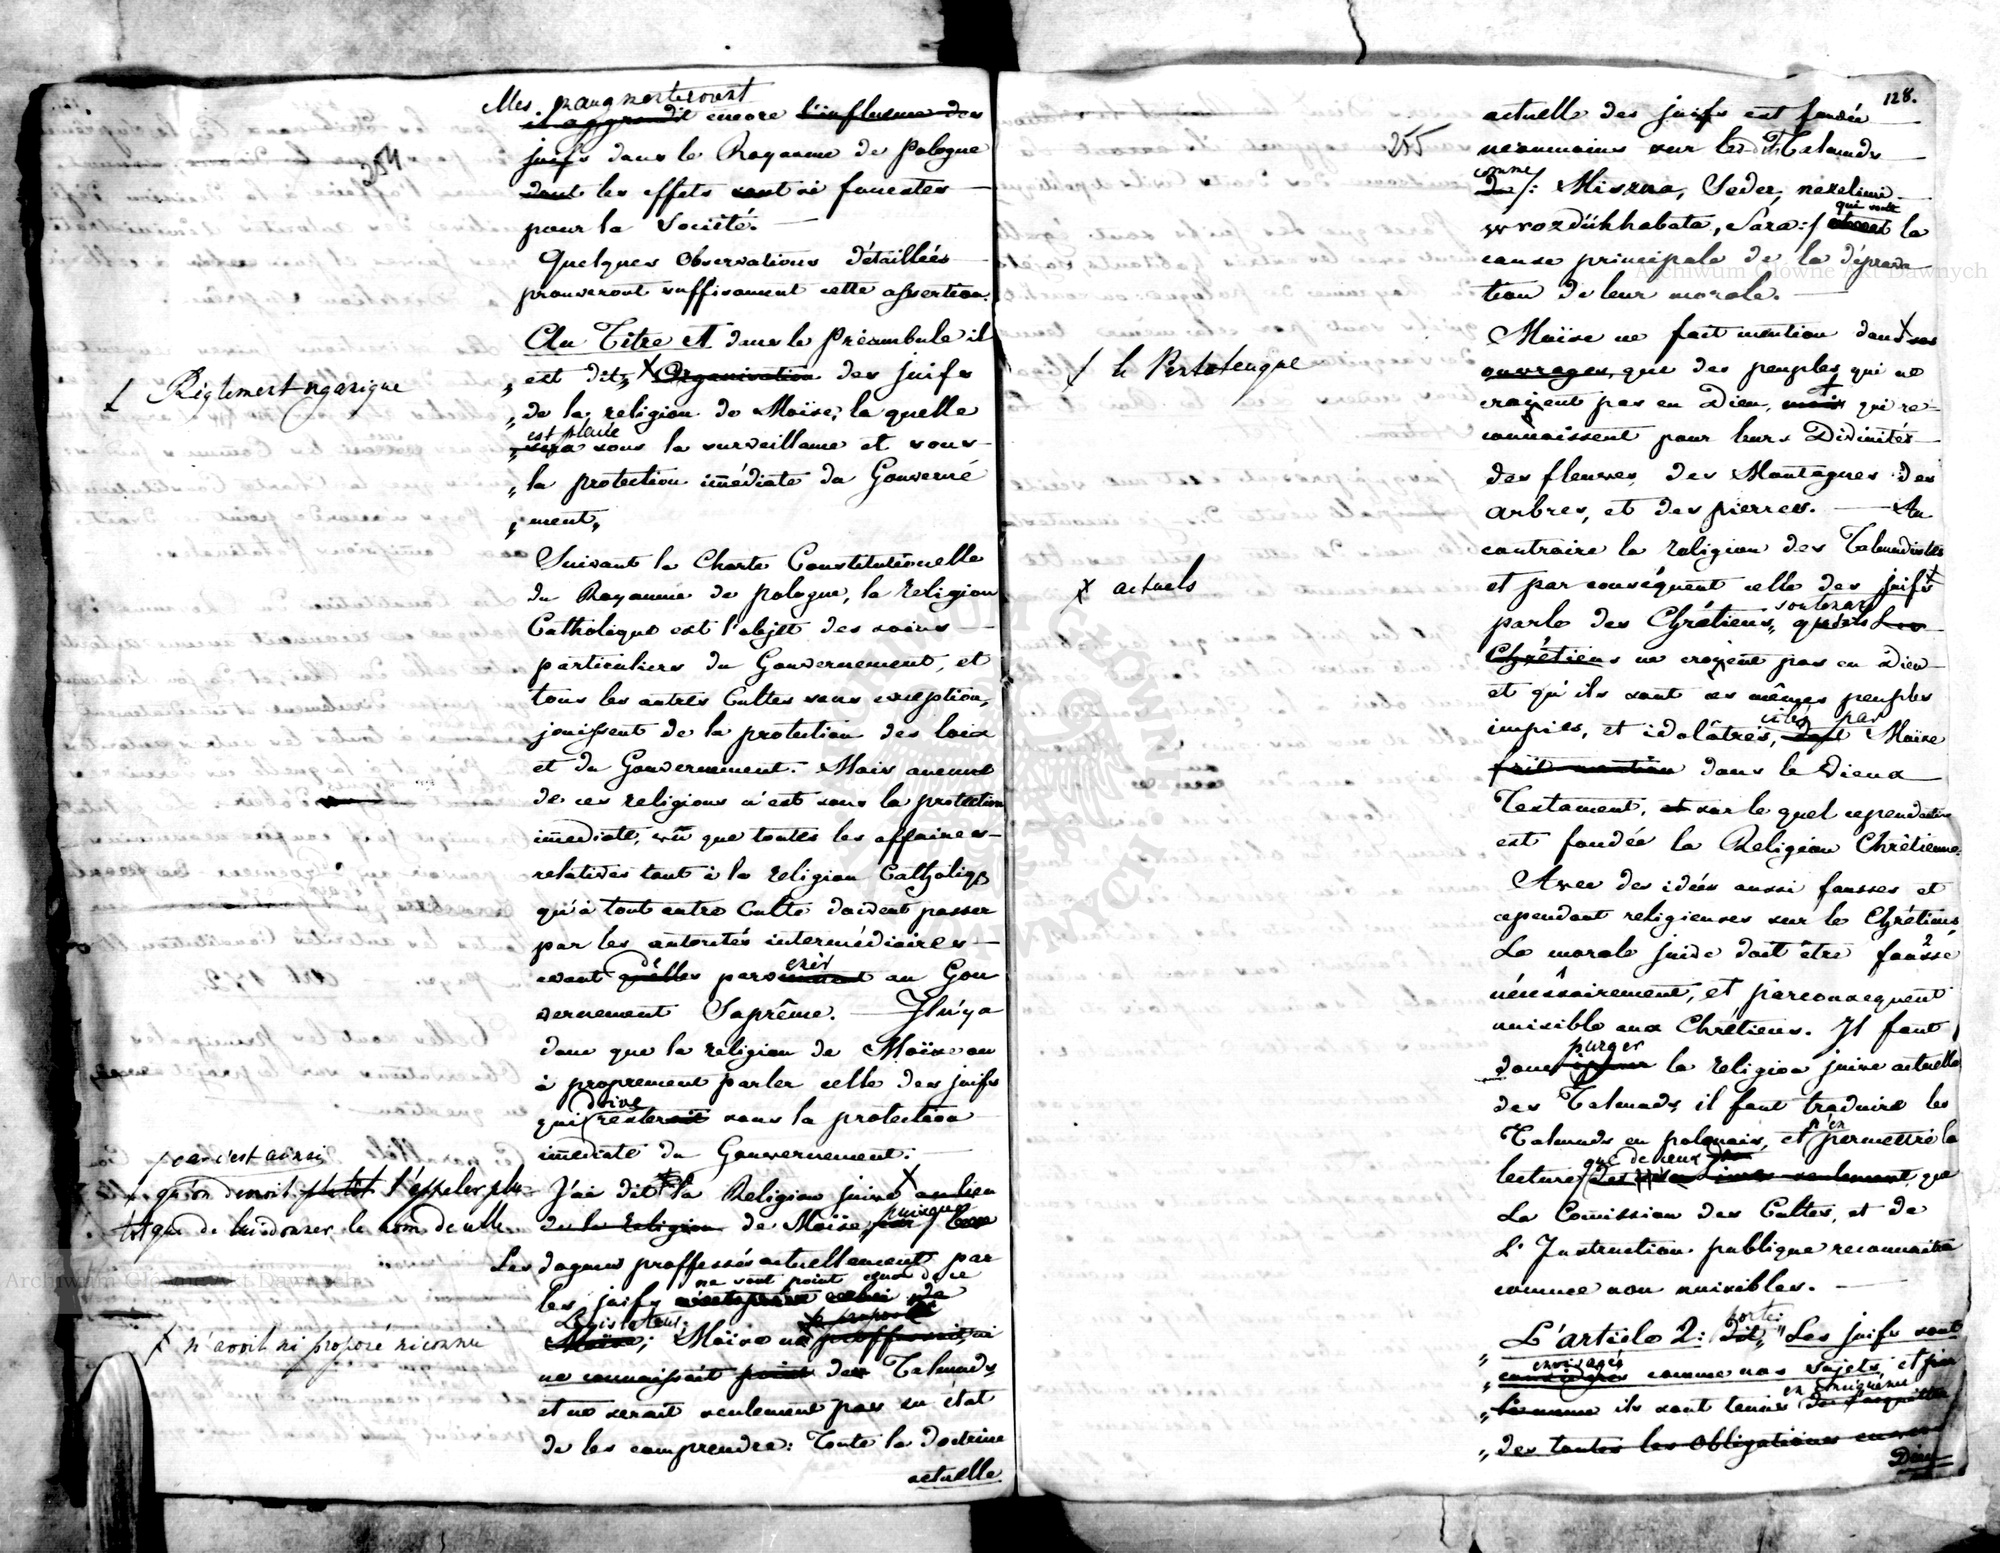 254
Elles n'augmenteroient
il aggrandit encore l'influence des
juifs dans le Royaume de Pologne
dont les effets sont si funestes
pour la Société. —
Quelques Observations détaillées
prouveront suffisament cette assertion.
Au Titre 1 dans le Préambule il
„est dit„ Organisation des juifs
Réglement organique
„de la religion de Moïse, la quelle
est placée
„sera sous la surveillance et sous
„la protection imédiate du Gouverne
„ment„
Suivant la Charte Constitutionelle
du Royaume de pologne, la religion
Catholique est l'objet des soins
particuliers du Gouvernement, et
tous les autres Cultes sans exception,
jouissent de la protection des loix
et du Gouvernement. Mais aucune
de ces religions n'est sous la protection
imediate, vû que toutes les affaires
relatives tant à la religion Catholiq.
qu'à tout autre Culte doivent passer
par les autorités intermédiaires
avant qu'elles parviennent au Gou
vernement Suprême. — Il n'y a
donc que la religion de Moïse ou
à proprement parler celle des juifs
doive
qui resteroit sous la protection
imediate du Gouvernement.
car c'est ainsi
qu'on devroit plutôt l'appeler plu
tôt que de lui donner le nom de celle
J'ai dit la Religion juive au lieu
de la religion de Moïse, car puisque
Les dogmes proffessés actuellement par
ne sont point ceux de ce
les juifs
Legislateur.
Moïse; Moïse ne proffessait, ni
n'avoit ni proposé ni connu
ne connaissait point des Talmuds,
et ne serait seulement pas en état
de les comprendre: Toute la doctrine
actuelle
128.
255
actuelle des juifs est fondée
neanmoins sur les dits Talmuds
comme
de /: Miszna, Seder, nezelimi
qui sont
wrozdükhabata, Sara:/ la
cause principale de la déprava
tion de leur morale. —
Moïse ne fait mention dans ses
le Pentateuque
ouvrages, que des peuples qui ne
croyent pas en Dieu, mais qui re-
connaissent pour leurs Divinités
des fleuves, des Montagnes des
arbres, et des pierres. — Au
contraire la religion des Talmudistes
et par conséquent celle des juifs
actuels
soutenant
parle des Chrétiens, qu'ils Les
Chrétiens ne croyent pas en Dieu
et qu'ils sont ces mêmes peuples
cités par
impies, et idolâtres, dont Moïse
fait mention dans le Vieux
Testament, et sur le quel cependant
est fondée la Religion Chrétienne.
Avec des idées aussi fausses et
cependant religieuses sur le Chrétiens,
La morale juive doit être fausse
nécessairement, et par consequent
nuisible aux Chrétiens. Il faut
purger
donc la religion juive actuelle
des Talmuds, il faut traduire les
Talmuds en polonais, et n'en permettre la
que de ceux
lecture des Livres seulement que
La Comission des Cultes, et de
L'Instruction publique reconnaitra
comme non nuisibles. —
porte
„L'article 2: dit, "Les juifs sont
envisagés
„considérés comme nos sujets, et par
en conséquence
„là même ils sont tenus de s'acquitter
„des toutes les obligations envers
Dieu